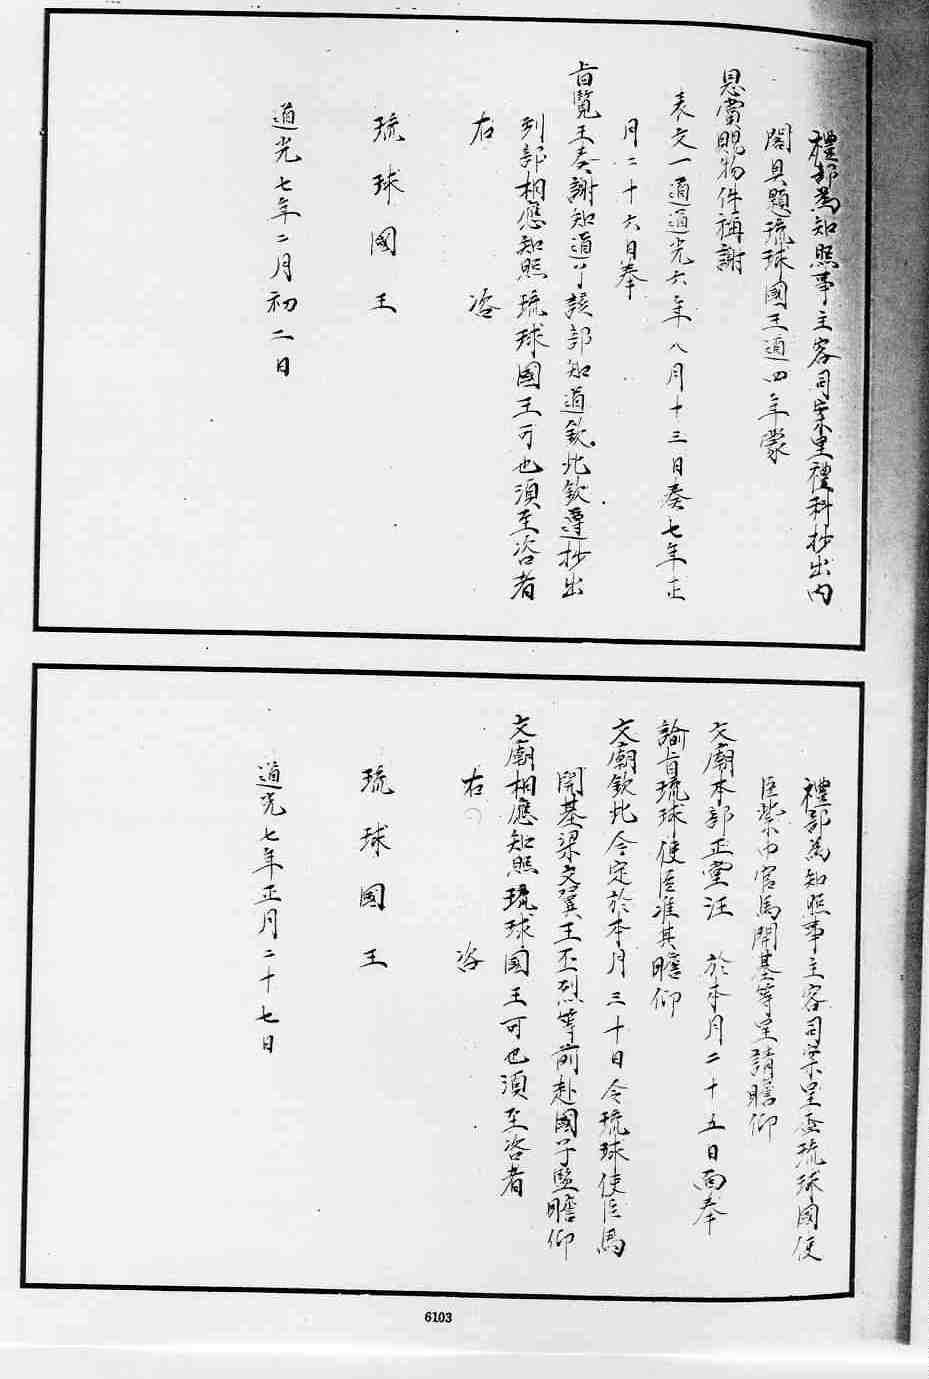 禮部為知照事主客司案呈禮科抄出內
閣具題琉球國王通四年蒙
恩賞賜物件稱謝
表文一通道光六年八月十三日奏七年正
月二十六日奉
旨覽王奏謝知道了該部知道欽此欽遵抄出
到部相應知照琉球國王可也須至咨者
右咨
琉球國王
道光七年二月初二日
禮部為知照事主客司案呈琉球國使
臣紫巾官馬開基等呈請瞻仰
文廟本部正堂汪 於本月二十五日面奉
諭旨琉球使臣准其瞻仰
文廟欽此今定於本月三十日令琉球使臣馬
開基梁文翼王丕烈等前赴國子監瞻仰
文廟相應知照琉球國王可也須至咨者
右咨
琉球國王
道光七年正月二十七日
6103